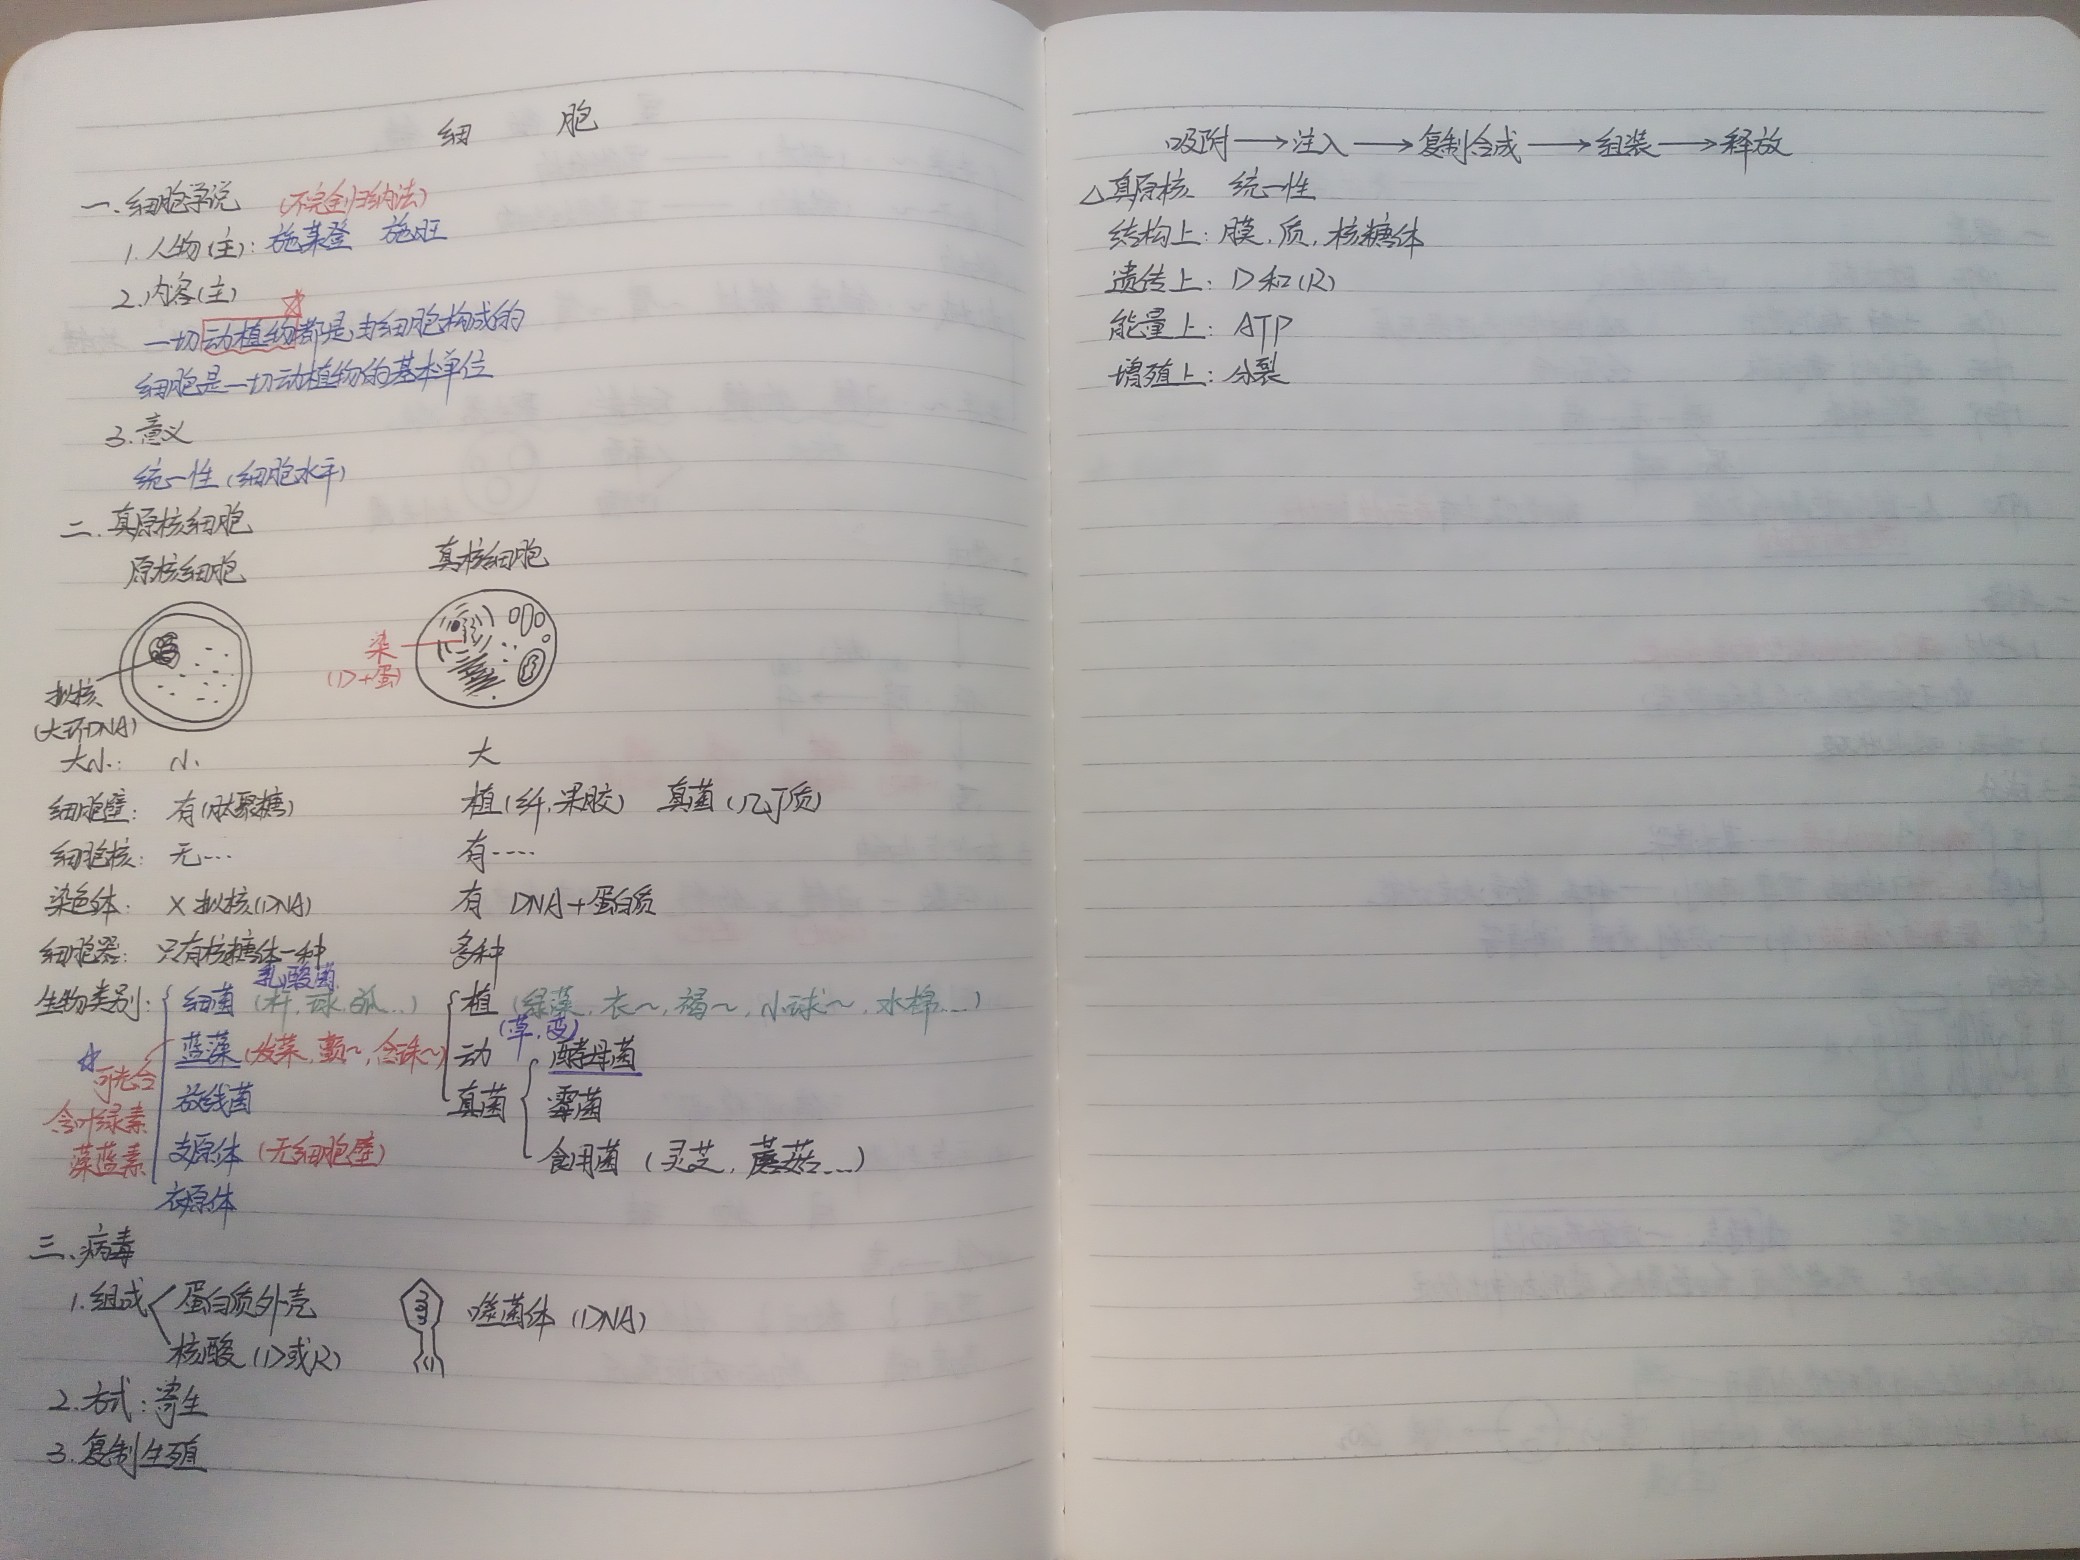 细 胞
一、细胞学说 (不完全归纳法)
1. 人物(主): 施莱登 施旺
2. 内容(主)
一切动植物都是由细胞构成的
细胞是一切动植物的基本单位
3. 意义
统一性 (细胞水平)
二. 真原核细胞
原核细胞 真核细胞
拟核
(大环DNA)
染
(D+蛋)
大小: 小 大
细胞壁: 有(肽聚糖) 植(纤,果胶) 真菌(几丁质)
细胞核: 无… 有……
染色体: × 拟核(DNA) 有 DNA+蛋白质
细胞器: 只有核糖体一种 多种
乳酸菌
生物类别: 细菌 (杆,球,弧…) 植 (绿藻,衣~,褐~,小球~,水棉…)
(草,变)
蓝藻(发菜,颤~,念珠~) 动 酵母菌
☆可光合
含叶绿素
藻蓝素
放线菌 真菌 霉菌
支原体 (无细胞壁) 食用菌 (灵芝,蘑菇…)
衣原体
三、病毒
1. 组成 蛋白质外壳
核酸(D或R)
噬菌体(DNA)
2. 方式: 寄生
3. 复制生殖
吸附→注入→复制合成→组装→释放
△真原核 统一性
结构上: 膜,质,核糖体
遗传上: D和(R)
能量上: ATP
增殖上: 分裂